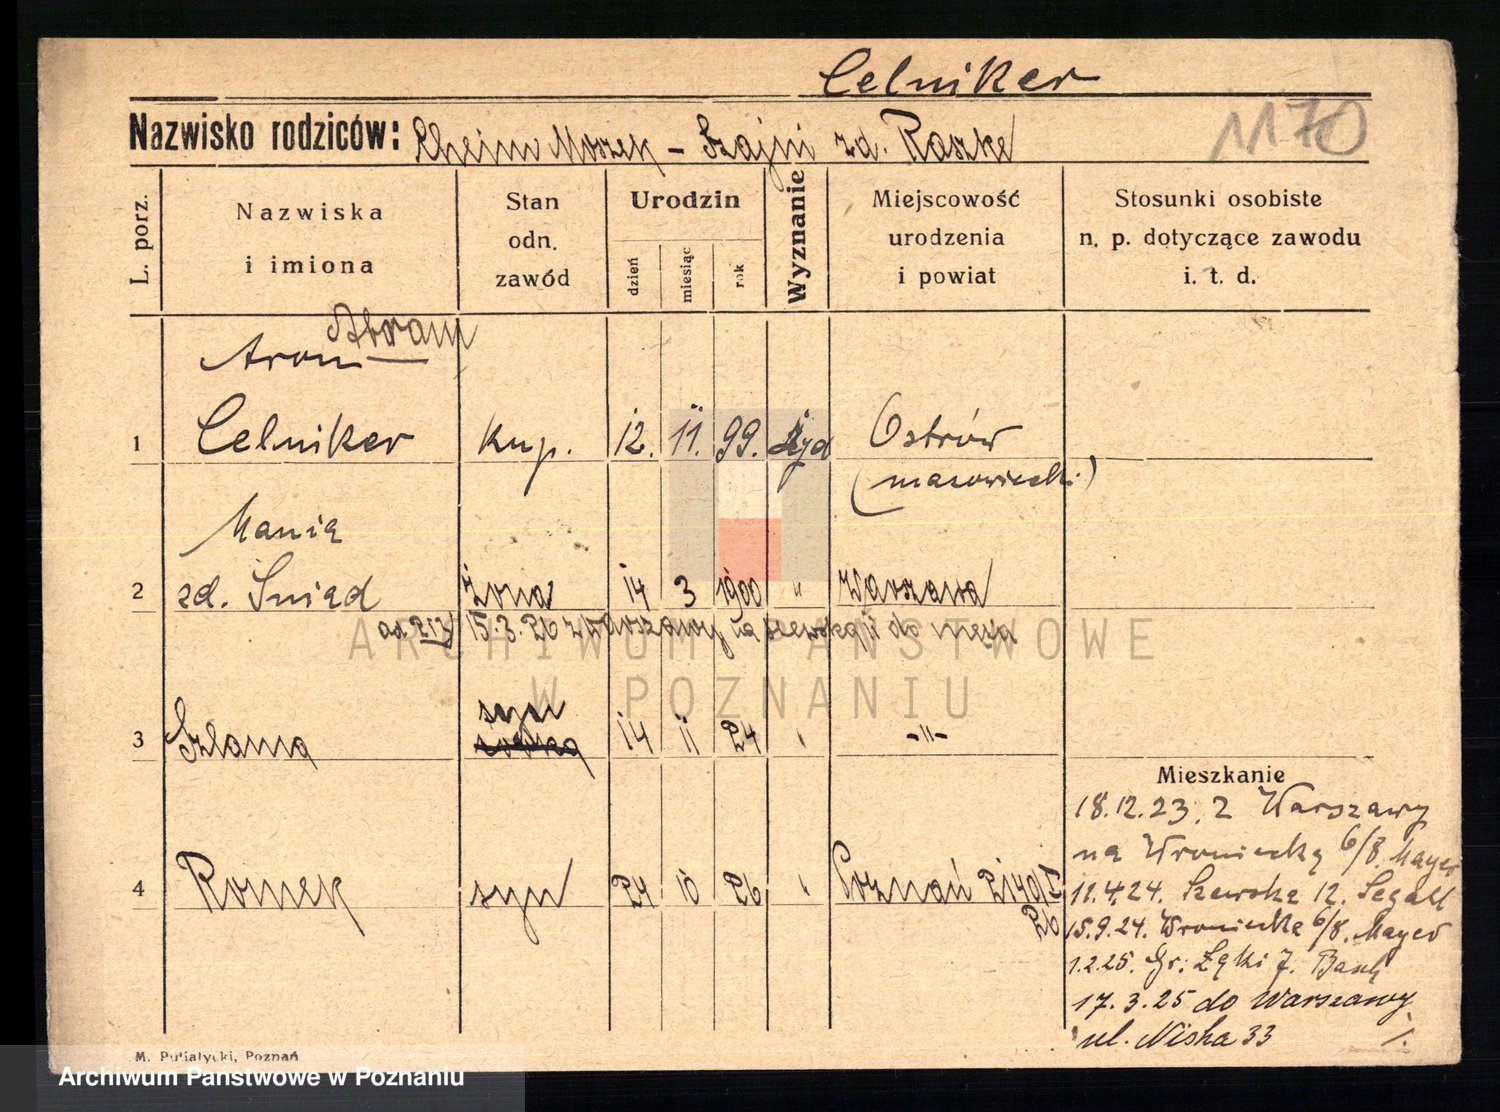 Celniker
1170
Nazwisko rodziców: Chaim Moszek - Szajni zd. Raszke
L. porz.
Nazwiska
i imiona
Stan
odn.
zawód
Urodzin
dzień
miesiąc
rok
Wyznanie
Miejscowość
urodzenia
i powiat
Stosunki osobiste
n. p. dotyczące zawodu
i. t. d.
Abram
Aron
1 Celniker kup. 12. 11. 99. żyd Ostrów
(mazowiecki)
Mania
2 zd. Śniad żona 14 3 1900 " Warszawa
15.3.26 z Warszawy na Szewską 11 do męża
syn
3 Szlama 14 11 24 -"-
Mieszkanie
18.12.23. z Warszawy
na Wroniecką 6/8. Mayer
4 Romek syn 24 10 26 Poznań 2140/I
26
11.4.24. Szewska 12. Segall
15.9.24. Wroniecka 6/8. Mayer
1.2.25. Gr. Łąki 7. Basch
17.3.25 do Warszawy
ul. Niska 33
M. Putiatycki, Poznań
ARCHIWUM PAŃSTWOWE
W POZNANIU
Archiwum Państwowe w Poznaniu